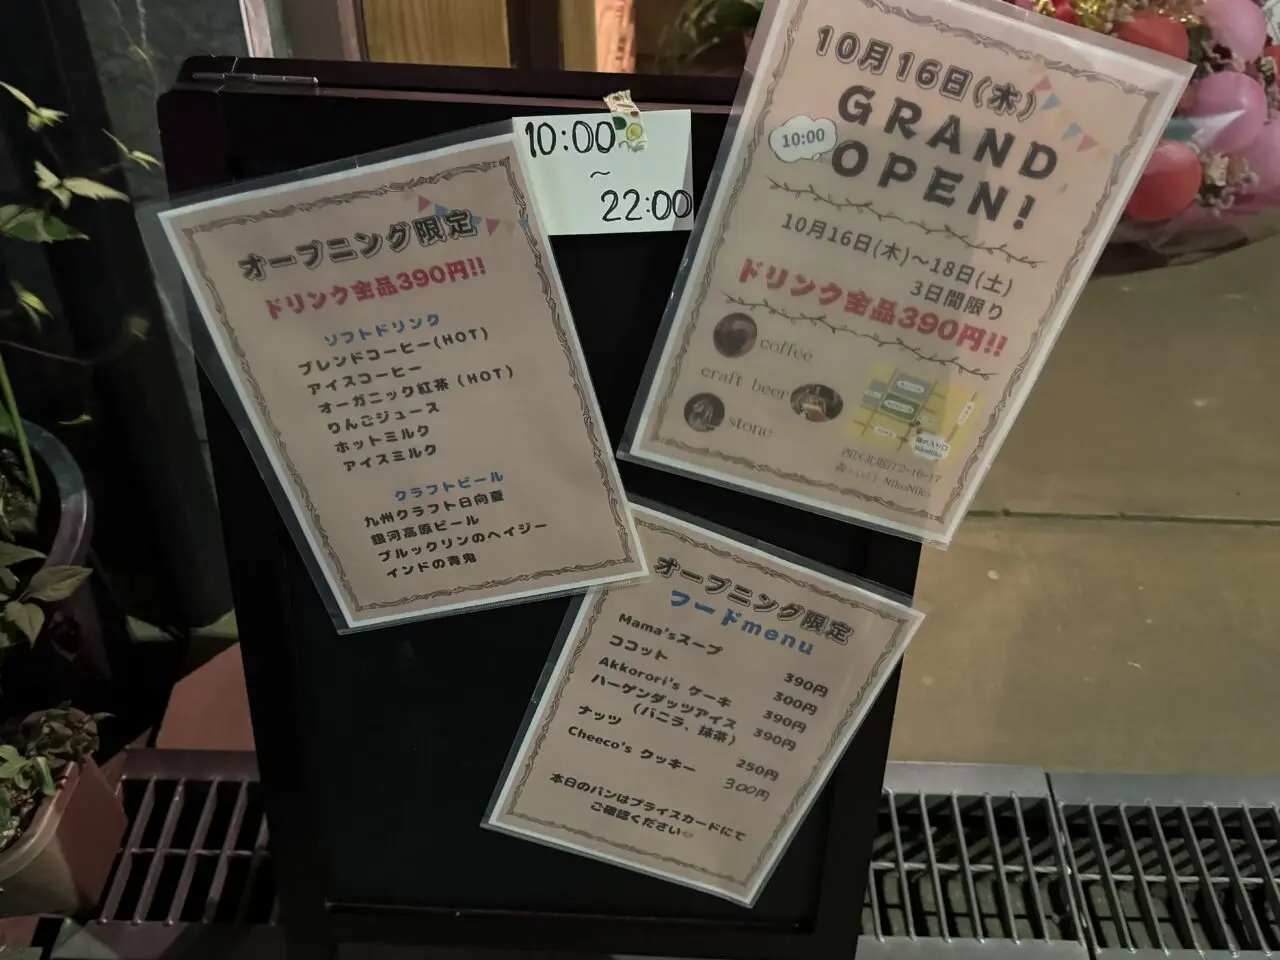 10:00
~
22:00
オープニング限定
ドリンク全品390円!!
ソフトドリンク
ブレンドコーヒー(HOT)
アイスコーヒー
オーガニック紅茶(HOT)
りんごジュース
ホットミルク
アイスミルク
クラフトビール
九州クラフト日向夏
銀河高原ビール
ブルックリンのヘイジー
インドの青鬼
10月16日(木)
10:00
GRAND
OPEN!
10月16日(木)~18日(土)
3日間限り
ドリンク全品390円!!
coffee
craft beer
stone
西区北堀江2-16-17
NikoNiko
オープニング限定
フードmenu
Mama'sスープ 390円
ココット 300円
Akkorori's ケーキ 390円
ハーゲンダッツアイス 390円
(バニラ、抹茶)
ナッツ 250円
Cheeco's クッキー 300円
本日のパンはプライスカードにて
ご確認ください